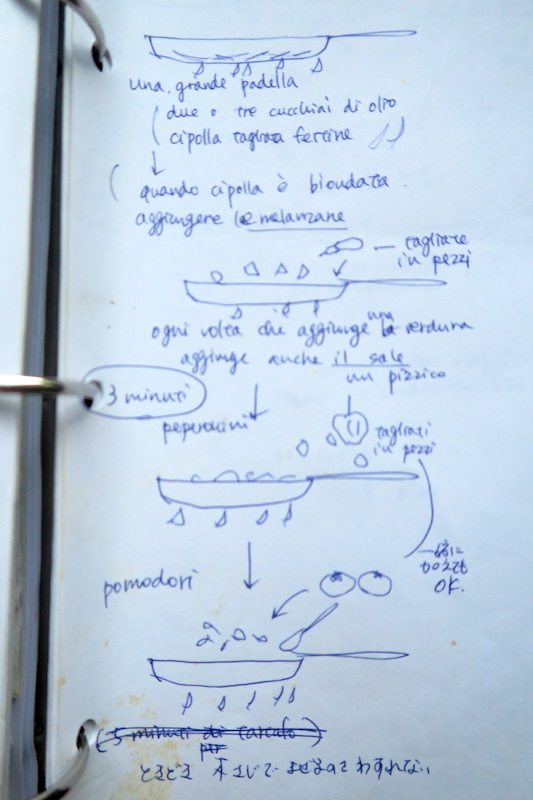 una grande padella
due o tre cucchiai di olio
cipolla tagliata fettine
quando cipolla è biondata.
aggiungere le melanzane
tagliare
in pezzi
ogni volta che aggiunge una verdura
aggiunge anche il sale
un pizzico
3 minuti
peperoncini
tagliati
in pezzi
一緒に
OK.
pomodori
5 minuti di
ときどき 木さじで まぜるの わすれない